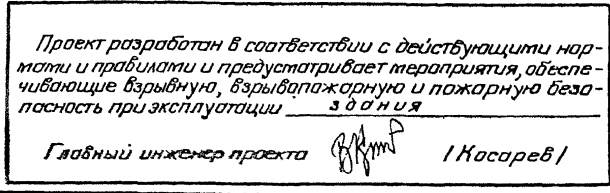 Проект разработан в соответствии с действующими нор-
мами и правилами и предусматривает мероприятия, обеспе-
чивающие взрывную, взрывопожарную и пожарную безо-
пасность при эксплуатации здания
Главный инженер проекта /Косарев/